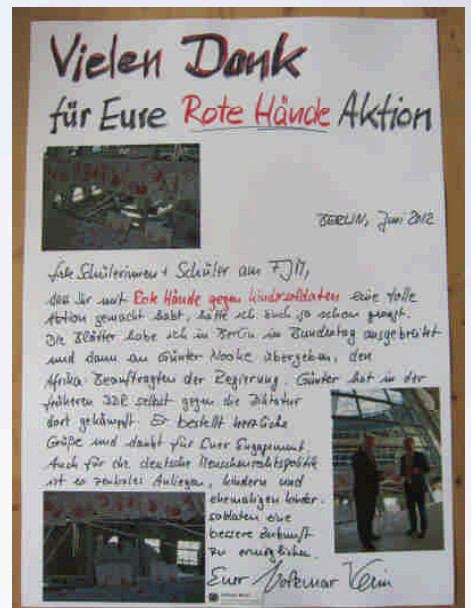 Vielen Dank
für Eure Rote Hände Aktion
BERLIN, Juni 2012
Liebe Schülerinnen + Schüler am FJM,
daß Ihr mit Rote Hände gegen Kindersoldaten eine tolle
Aktion gemacht habt, hatte ich Euch ja schon gesagt.
Die Blätter habe ich in Berlin im Bundestag ausgebreitet
und dann an Günter Nooke übergeben, den
Afrika-Beauftragten der Regierung. Günter hat in der
früheren DDR selbst gegen die Diktatur
dort gekämpft. Er bestellt herzliche
Grüße und dankt für Euer Engagement.
Auch für die deutsche Menschenrechtspolitik
ist es zentrales Anliegen, Kindern und
ehemaligen Kinder-
soldaten eine
bessere Zukunft
zu ermöglichen.
Euer Volkmar Klein